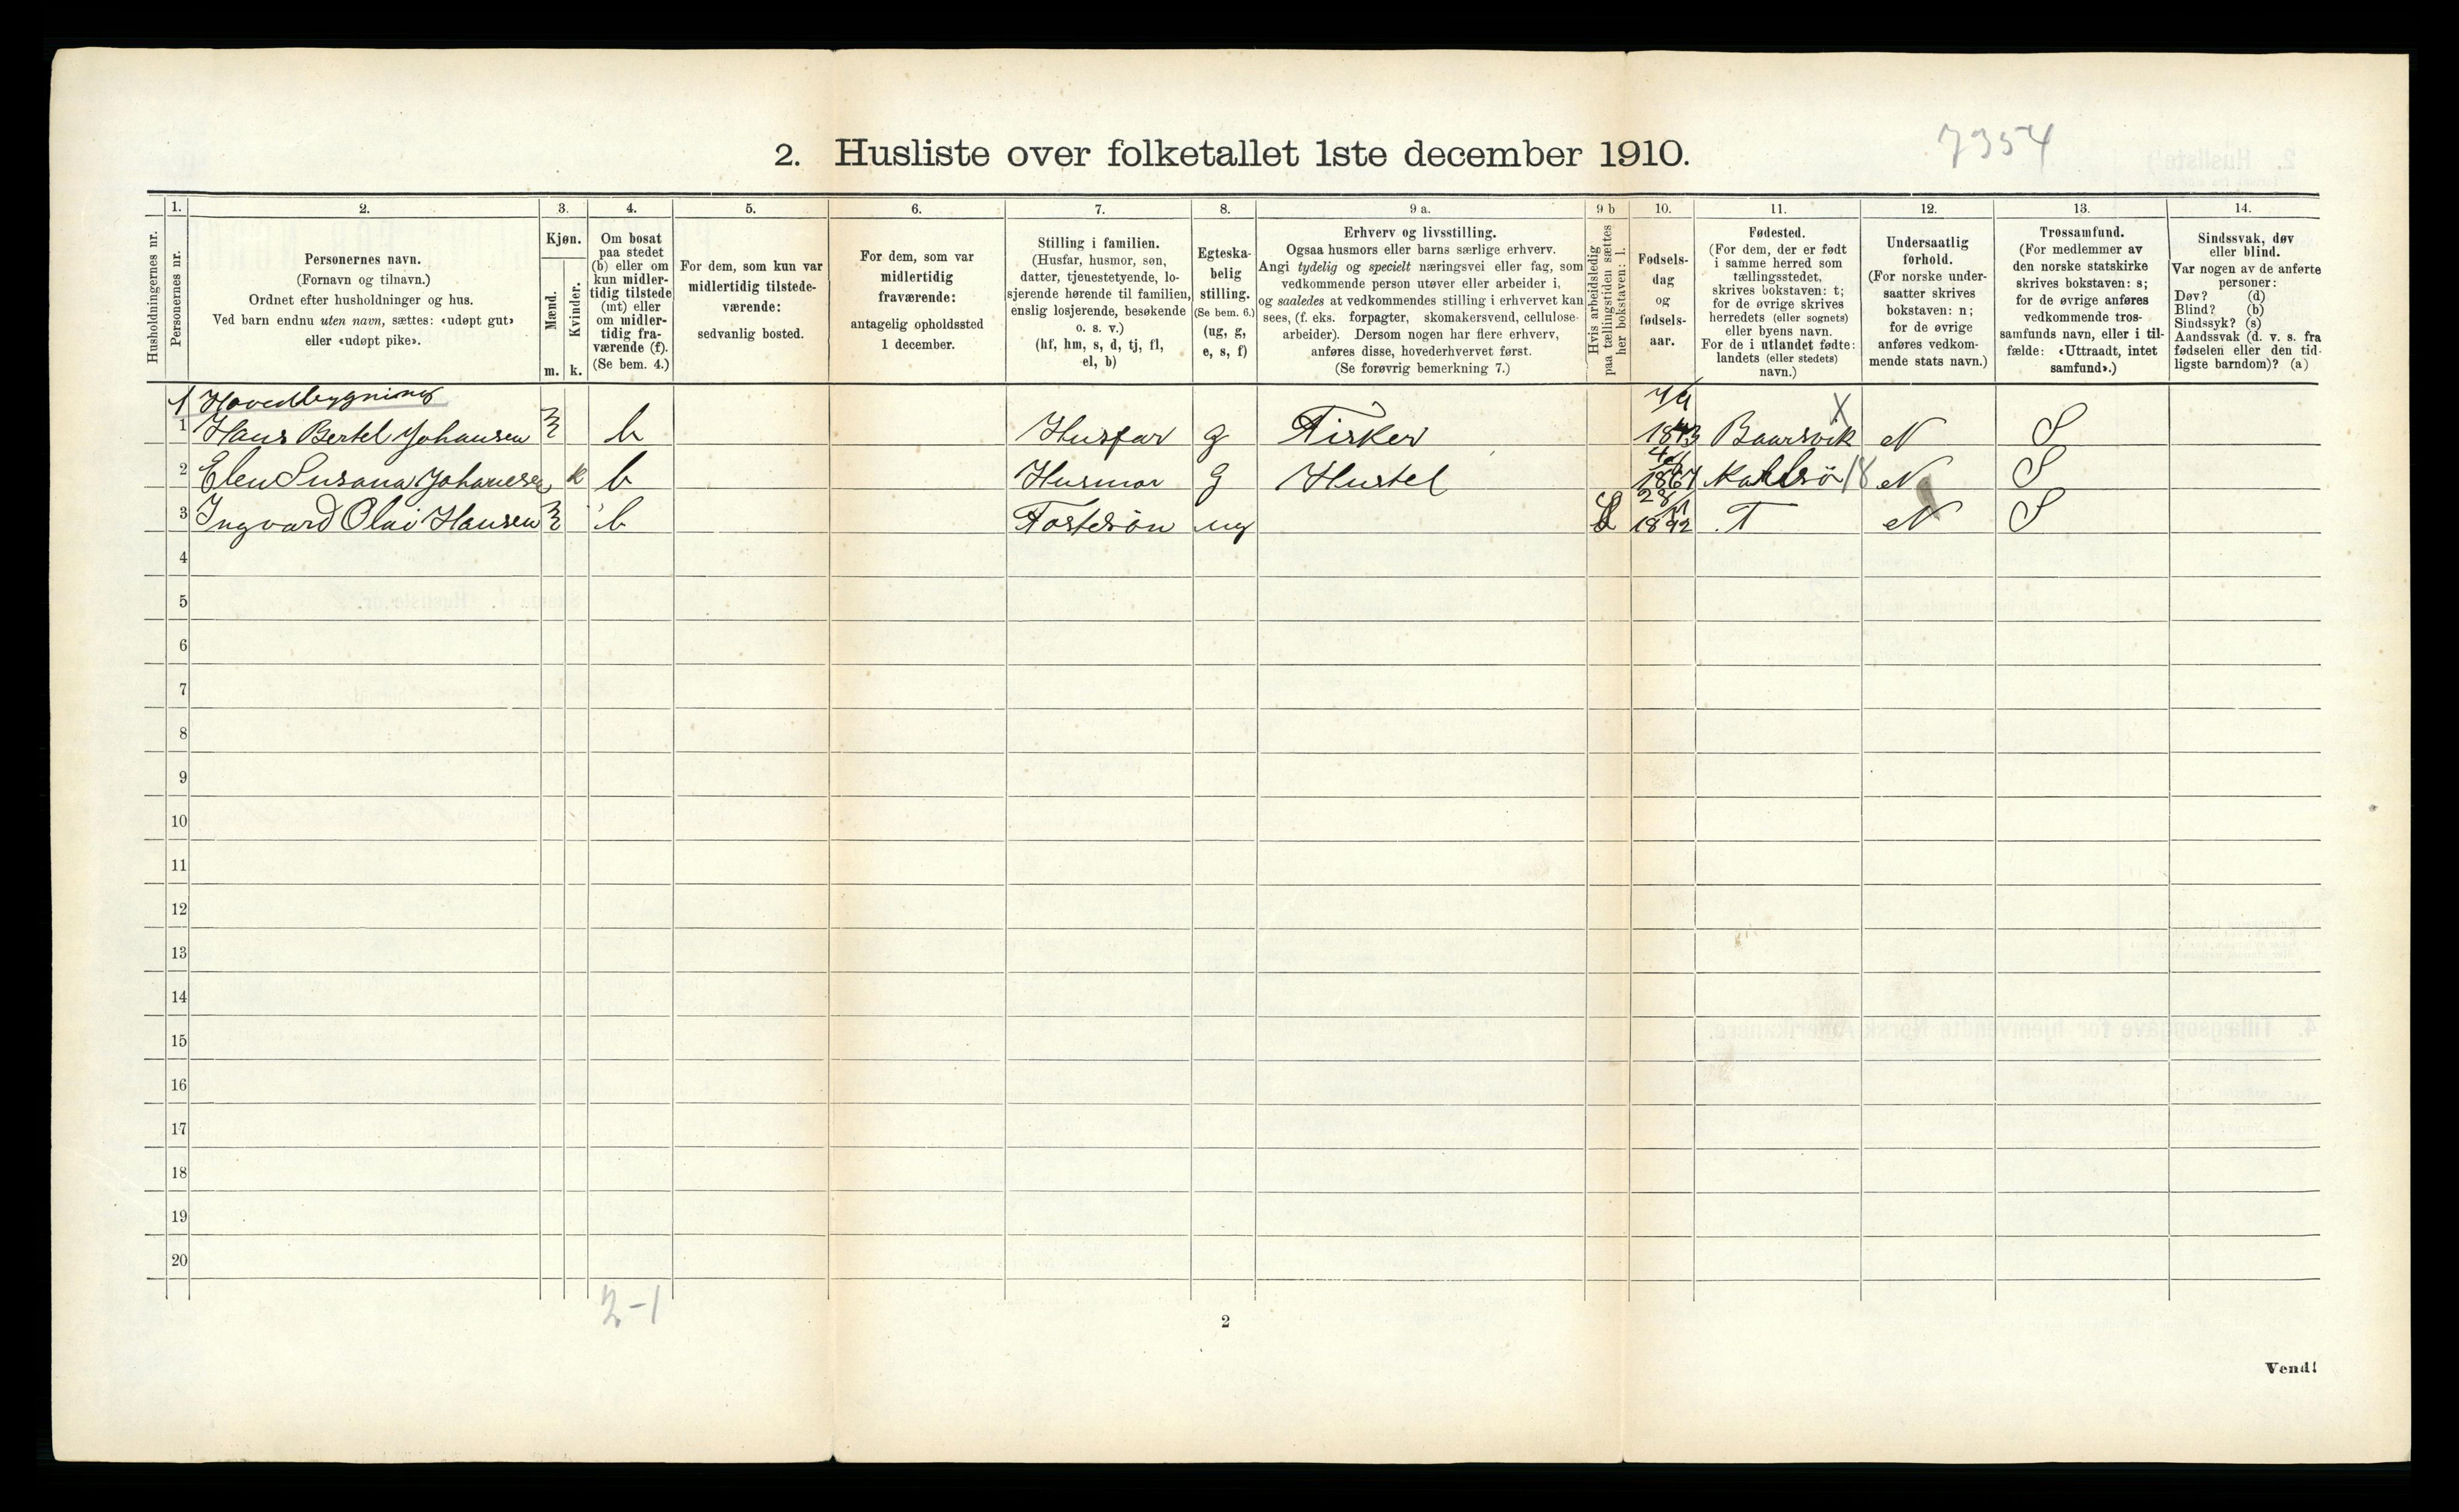 7354
2. Husliste over folketallet 1ste december 1910.
Husholdningernes nr.
1.
Personernes nr.
2.
Personernes navn.
(Fornavn og tilnavn.)
Ordnet efter husholdninger og hus.
Ved barn endnu uten navn, sættes: «udøpt gut»
eller «udøpt pike».
3.
Kjøn.
Mænd.
Kvinder.
m. k.
4.
Om bosat
paa stedet
(b) eller om
kun midler-
tidig tilstede
(mt) eller
om midler-
tidig fra-
værende (f).
(Se bem. 4.)
5.
For dem, som kun var
midlertidig tilstede-
værende:
sedvanlig bosted.
6.
For dem, som var
midlertidig
fraværende:
antagelig opholdssted
1 december.
7.
Stilling i familien.
(Husfar, husmor, søn,
datter, tjenestetyende, lo-
sjerende hørende til familien,
enslig losjerende, besøkende
o. s. v.)
(hf, hm, s, d, tj, fl,
el, b)
8.
Egteska-
belig
stilling.
(Se bem. 6.)
(ug, g,
e, s, f)
9 a.
Erhverv og livsstilling.
Ogsaa husmors eller barns særlige erhverv.
Angi tydelig og specielt næringsvei eller fag, som
vedkommende person utøver eller arbeider i,
og saaledes at vedkommendes stilling i erhvervet kan
sees, (f. eks. forpagter, skomakersvend, cellulose-
arbeider). Dersom nogen har flere erhverv,
anføres disse, hovederhvervet først.
(Se forøvrig bemerkning 7.)
9 b
Hvis arbeidsledig
paa tællingstiden sættes
her bokstaven: l.
10.
Fødsels-
dag
og
fødsels-
aar.
11.
Fødested.
(For dem, der er født
i samme herred som
tællingsstedet,
skrives bokstaven: t;
for de øvrige skrives
herredets (eller sognets)
eller byens navn.
For de i utlandet fødte:
landets (eller stedets)
navn.)
12.
Undersaatlig
forhold.
(For norske under-
saatter skrives
bokstaven: n;
for de øvrige
anføres vedkom-
mende stats navn.)
13.
Trossamfund.
(For medlemmer av
den norske statskirke
skrives bokstaven: s;
for de øvrige anføres
vedkommende tros-
samfunds navn, eller i til-
fælde: «Uttraadt, intet
samfund».)
14.
Sindssvak, døv
eller blind.
Var nogen av de anførte
personer:
Døv? (d)
Blind? (b)
Sindssyk? (s)
Aandssvak (d. v. s. fra
fødselen eller den tid-
ligste barndom)? (a)
1 Hovedbygning
1 Hans Bertel Johansen m b Husfar g Fisker Baarsvik X N S
2 Elen Susana Johanesen k b Husmor g Hustel Karlsö 18 N S
3 Ingvard Olai Hansen m b Fostersön ug L 28/11 1892 T N S
4
5
6
7
8
9
10
11
12
13
14
15
16
17
18
19
20
2-1
2
Vend!